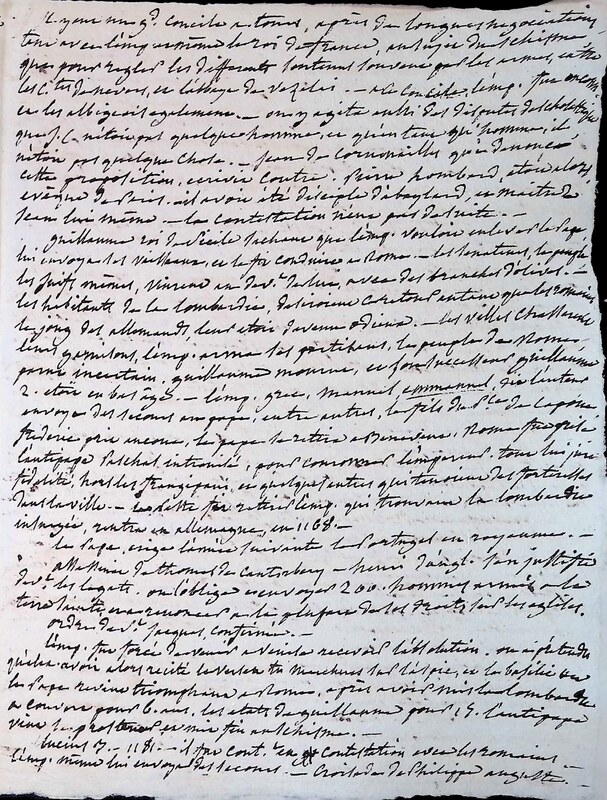 il y eut un gd. concile a tours, après de longues négociations
tent avec l'emp. et même le roi de france, au sujet du schisme
que pour regler les differents soutenus souvent par les armes, entre
les Ctes de nevers, et l'abbaye de vezelai. — ce concile l'emp. fut
et les albigeois egalement. — on y agita aussi des disputes de scholastique
que J. C. n'étoit pas quelque homme, et qu'en tant qu'homme, il
n'étoit pas quelque chose. — Jean de Cornouailles qui denonça
cette proposition, écrivit contre. Pierre Lombard, étoit alors
evêque de Paris. il avoit été disciple d'abeylard, et maitre de
Jean lui même. — la contestation n'eut pas de suite. —
Guillaume roi de Sicile sachant que l'emp. vouloit enlever le Pape
lui envoya ses vaisseaux, et le fit conduire a Rome. — les senateurs, le peuple
les juifs mêmes, vinrent au dev.t de lui, avec des branches d'olives. —
les habitants de la lombardie, desiroient ce retour autant que les romains
le joug des allemands, leur étoit devenu odieux. — les villes chasserent
leurs garnisons, l'emp. arma ses partisans, le peuple de Rome,
parut incertain. guillaume mourut, et son successeur guillaume
2. étoit en bas age. — l'emp. grec, manuel emmanuel, dit
envoya des secours au pape, entre autres, le fils du P.ce de capoue
frederic prit ancone, le pape se retire a Benevent, Rome fut prise
l'antipape Paschal intronisé, pour couronner l'empereur. tous lui jurent
fidelité, hors les frangipani, et quelques autres qui tenoient des forteresses
dans la ville. — la peste fit retirer l'emp. qui trouvant la lombardie
insurgée, rentra en allemagne, en 1168. —
le Pape, erige l'année suivante le Portugal en royaume. —
assassinat de thomas de cantorbery — henri d'angl. s'en justifie
dev.t les legats. on l'oblige a envoyer 200. hommes armés a la
terre sainte, et a renoncer a la plupart de ses droits sur les eglises.
ordre de St. Jacques, confirmé. —
l'emp. fut forcé de venir a venise recevoir l'absolution. on a prétendu
qu'alex. avoit alors recité le verset tu marcheras sur l'aspic, et le basilic
le Pape revint triomphant a Rome, après avoir mis la lombardie
a couvert pour 6. ans, les etats de guillaume pour 15. l'antipape
vient se prosterner et mit fin au schisme. —
Lucius 3. — 1181. — il fut cont. en contestation avec les romains —
l'emp. même lui envoya des secours. — Croisade de Philippe auguste. —